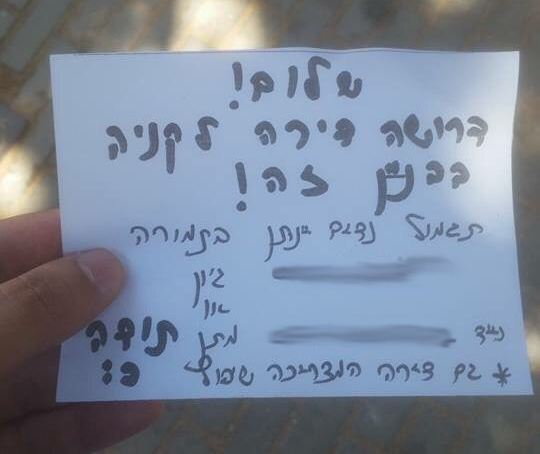 שלום!
דרושה דירה לקניה
בבנין זה!
תגמול נדיב ינתן בתמורה
ג'ין
או
נייד מתן תודה
* גם דירה המצריכה שיפוץ c: